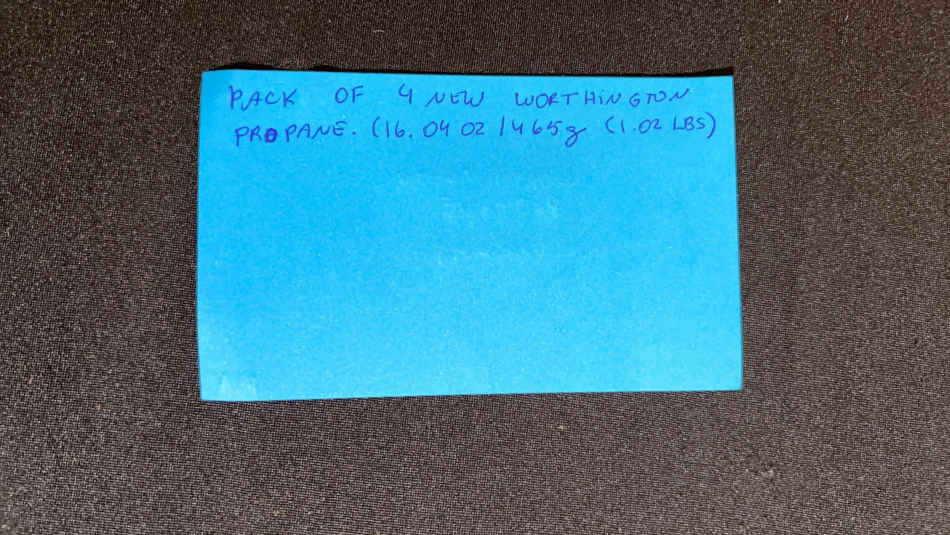 PACK OF 4 NEW WORTHINGTON
PROPANE. (16.04 OZ / 465g (1.02 LBS)